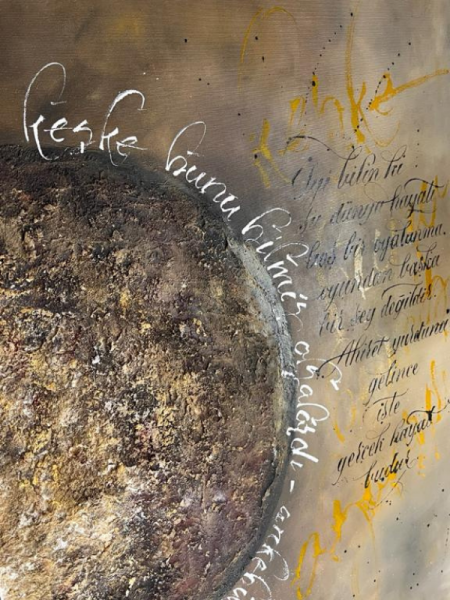 keşke bunu bilmiş olsalardı - ankebut
keşke
İyi bilin ki
şu dünya hayatı
boş bir oyalanma.
oyundan başka
bir şey değildir.
Ahiret yurduna
gelince
işte
gerçek hayat
budur